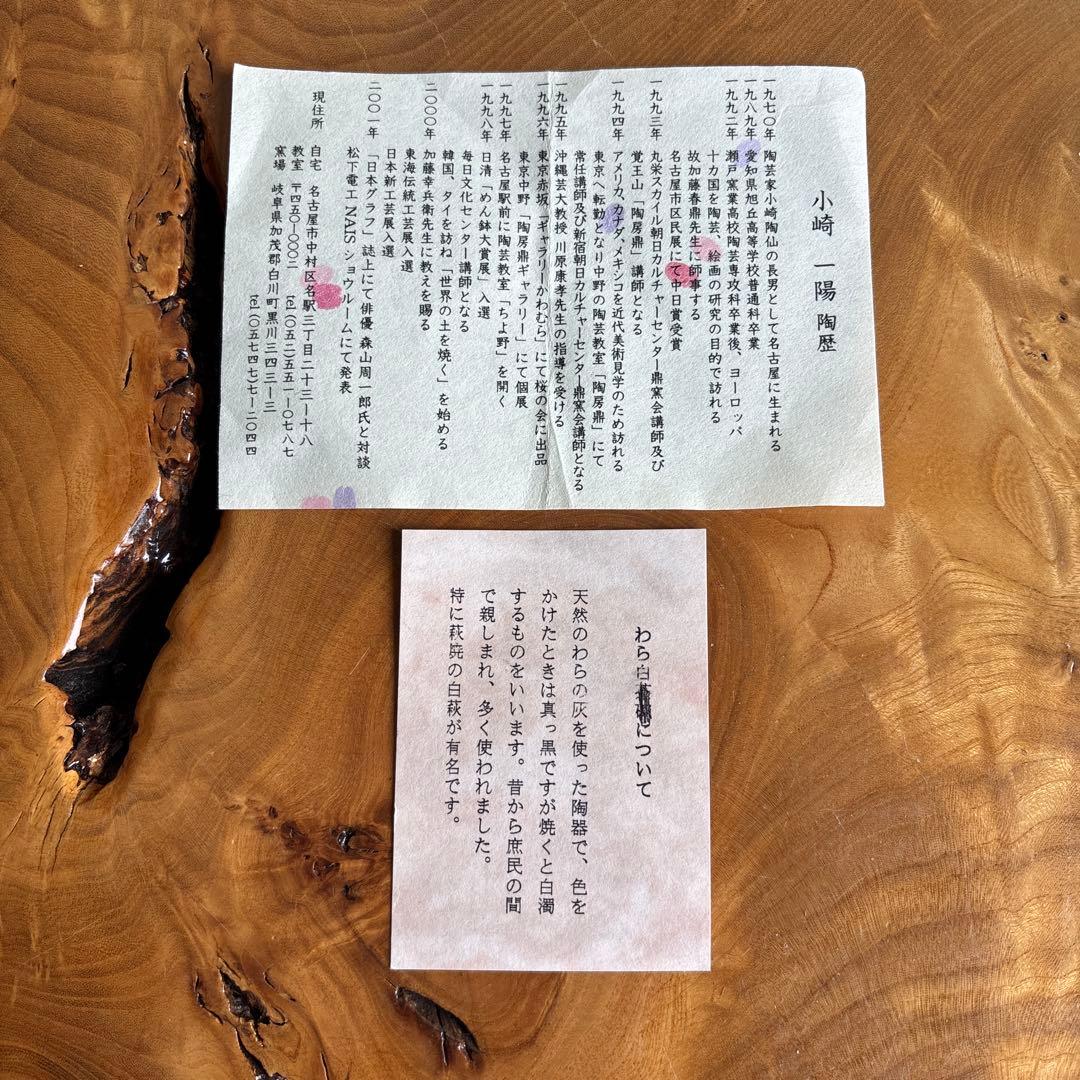 小崎 一陽 陶歴
一九七〇年 陶芸家小崎陶仙の長男として名古屋に生まれる
一九八九年 愛知県旭丘高等学校普通科卒業
一九九二年 瀬戸窯業高校陶芸専攻科卒業後、ヨーロッパ
十カ国を陶芸、絵画の研究の目的で訪れる
故加藤春鼎先生に師事する
名古屋市区民展にて中日賞受賞
一九九三年 丸栄スカイル朝日カルチャーセンター鼎窯会講師及び
覚王山「陶房鼎」講師となる
一九九四年 アメリカ、カナダ、メキシコを近代美術見学のため訪れる
東京へ転勤となり中野の陶芸教室「陶房鼎」にて
常任講師及び新宿朝日カルチャーセンター鼎窯会講師となる
一九九五年 沖縄芸大教授 川原康孝先生の指導を受ける
一九九六年 東京赤坂「ギャラリーかわむら」にて桜の会に出品
東京中野「陶房鼎ギャラリー」にて個展
一九九七年 名古屋駅前に陶芸教室「ちよ野」を開く
一九九八年 日清「めん鉢大賞展」入選
毎日文化センター講師となる
韓国、タイを訪ね「世界の土を焼く」を始める
二〇〇〇年 加藤幸兵衛先生に教えを賜る
東海伝統工芸展入選
日本新工芸展入選
二〇〇一年 「日本グラフ」誌上にて俳優 森山周一郎氏と対談
松下電工 NAIS ショウルームにて発表
現住所 自宅 名古屋市中村区名駅三丁目二十三―十八
教室 〒四五〇―〇〇〇二 tel(〇五二)五五一―〇七八七
窯場 岐阜県加茂郡白川町黒川三四三―三
tel(〇五七四七)七―二〇四四
わら白について
天然のわらの灰を使った陶器で、色を
かけたときは真っ黒ですが焼くと白濁
するものをいいます。昔から庶民の間
で親しまれ、多く使われました。
特に萩焼の白萩が有名です。